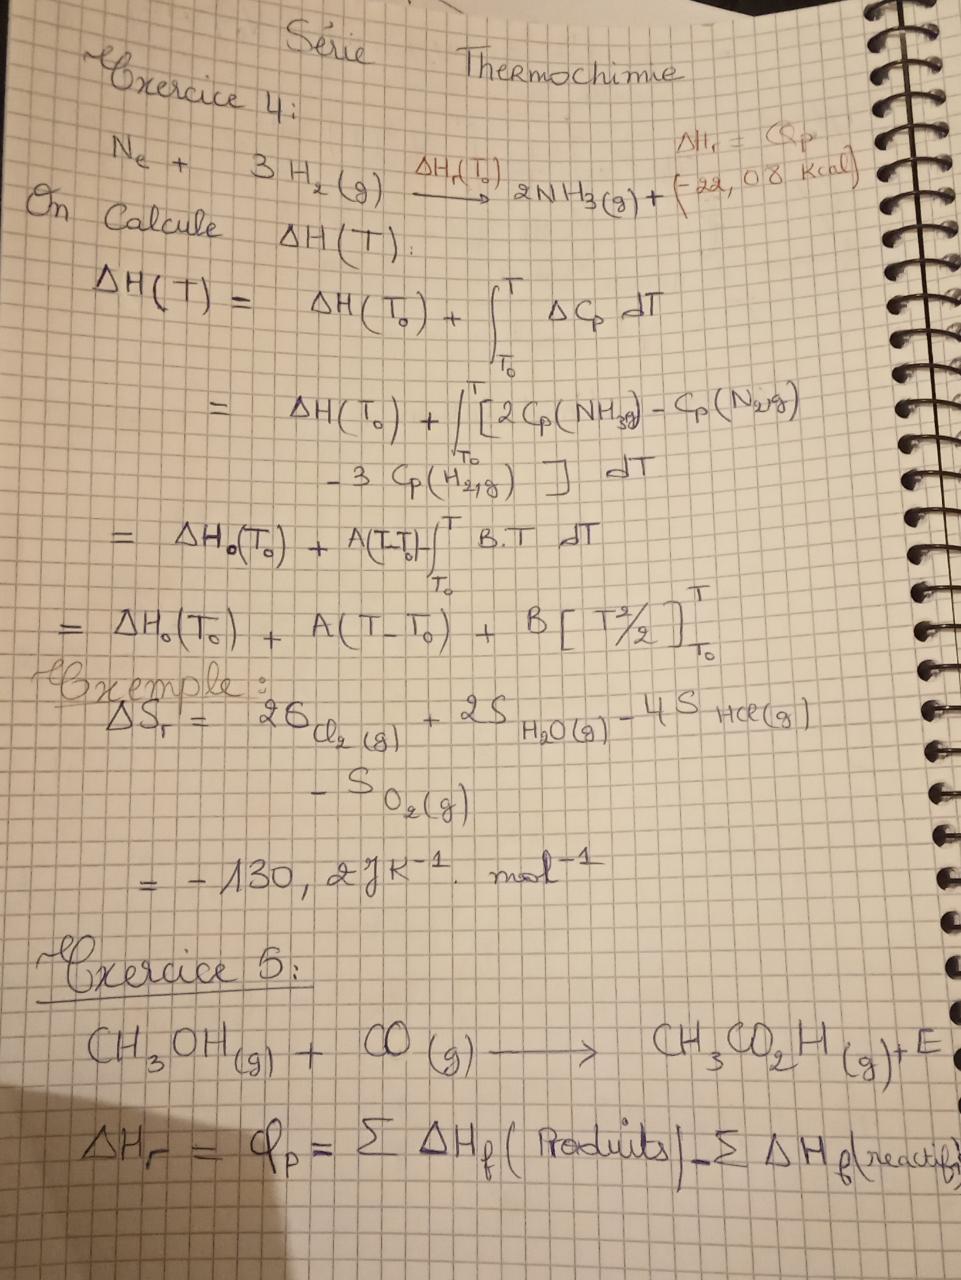 Série Thermochimie
Exercice 4:
ΔHr = Qp
Ne + 3 H₂(g) —ΔHr(T₀)→ 2NH₃(g) + (-22,08 Kcal)
On Calcule ΔH(T):
ΔH(T) = ΔH(T₀) + ∫_{T₀}^{T} ΔCp dT
= ΔH(T₀) + ∫_{T₀}^{T} [2Cp(NH₃g) - Cp(N₂,g)
- 3 Cp(H₂,g) ] dT
= ΔH₀(T₀) + A(T-T₀)+∫_{T₀}^{T} B.T dT
= ΔH₀(T₀) + A(T-T₀) + B[T²/2]_{T₀}^{T}
Exemple:
ΔSr = 2S Cl₂(g) + 2S H₂O(g) - 4S HCl(g)
- S O₂(g)
= - 130, 2 J K⁻¹. mol⁻¹
Exercice 5:
CH₃OH(g) + CO(g) ⟶ CH₃CO₂H(g) + E
ΔHr = Qp = Σ ΔHf(Produits) - Σ ΔHf(reactifs)